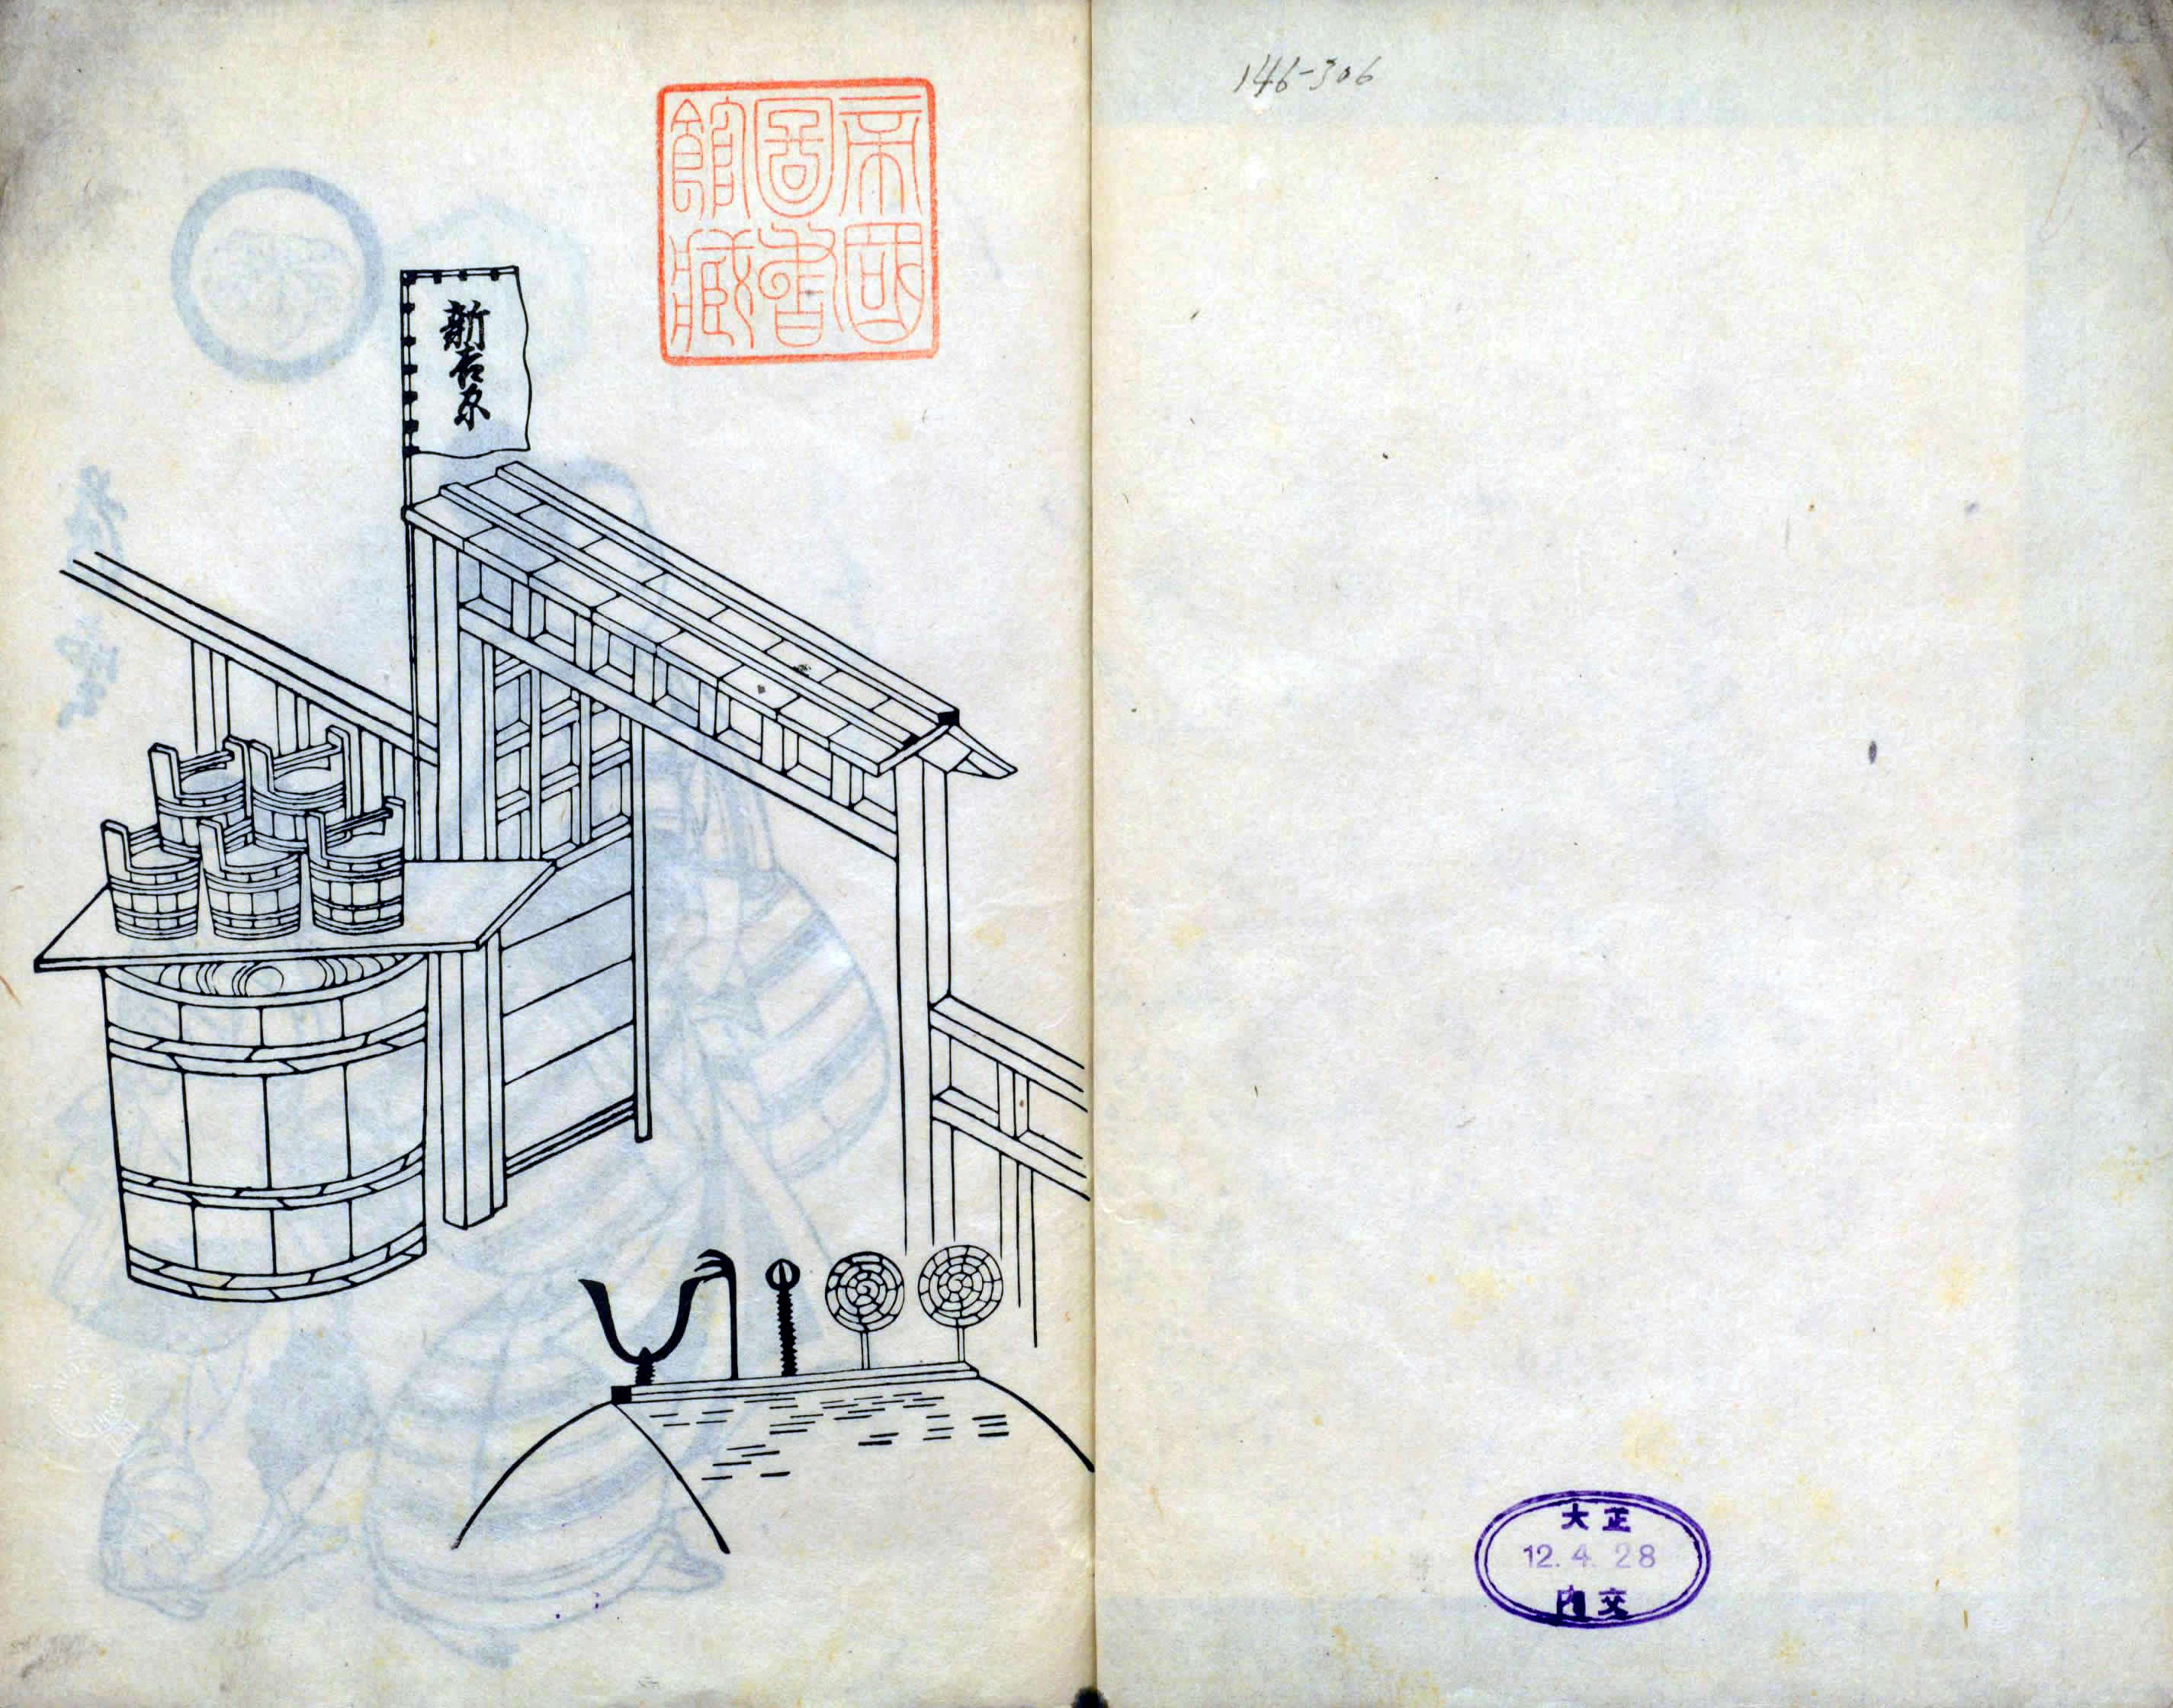 146-306
大正
12. 4. 28
内交
帝國
圖書
館藏
新吉原